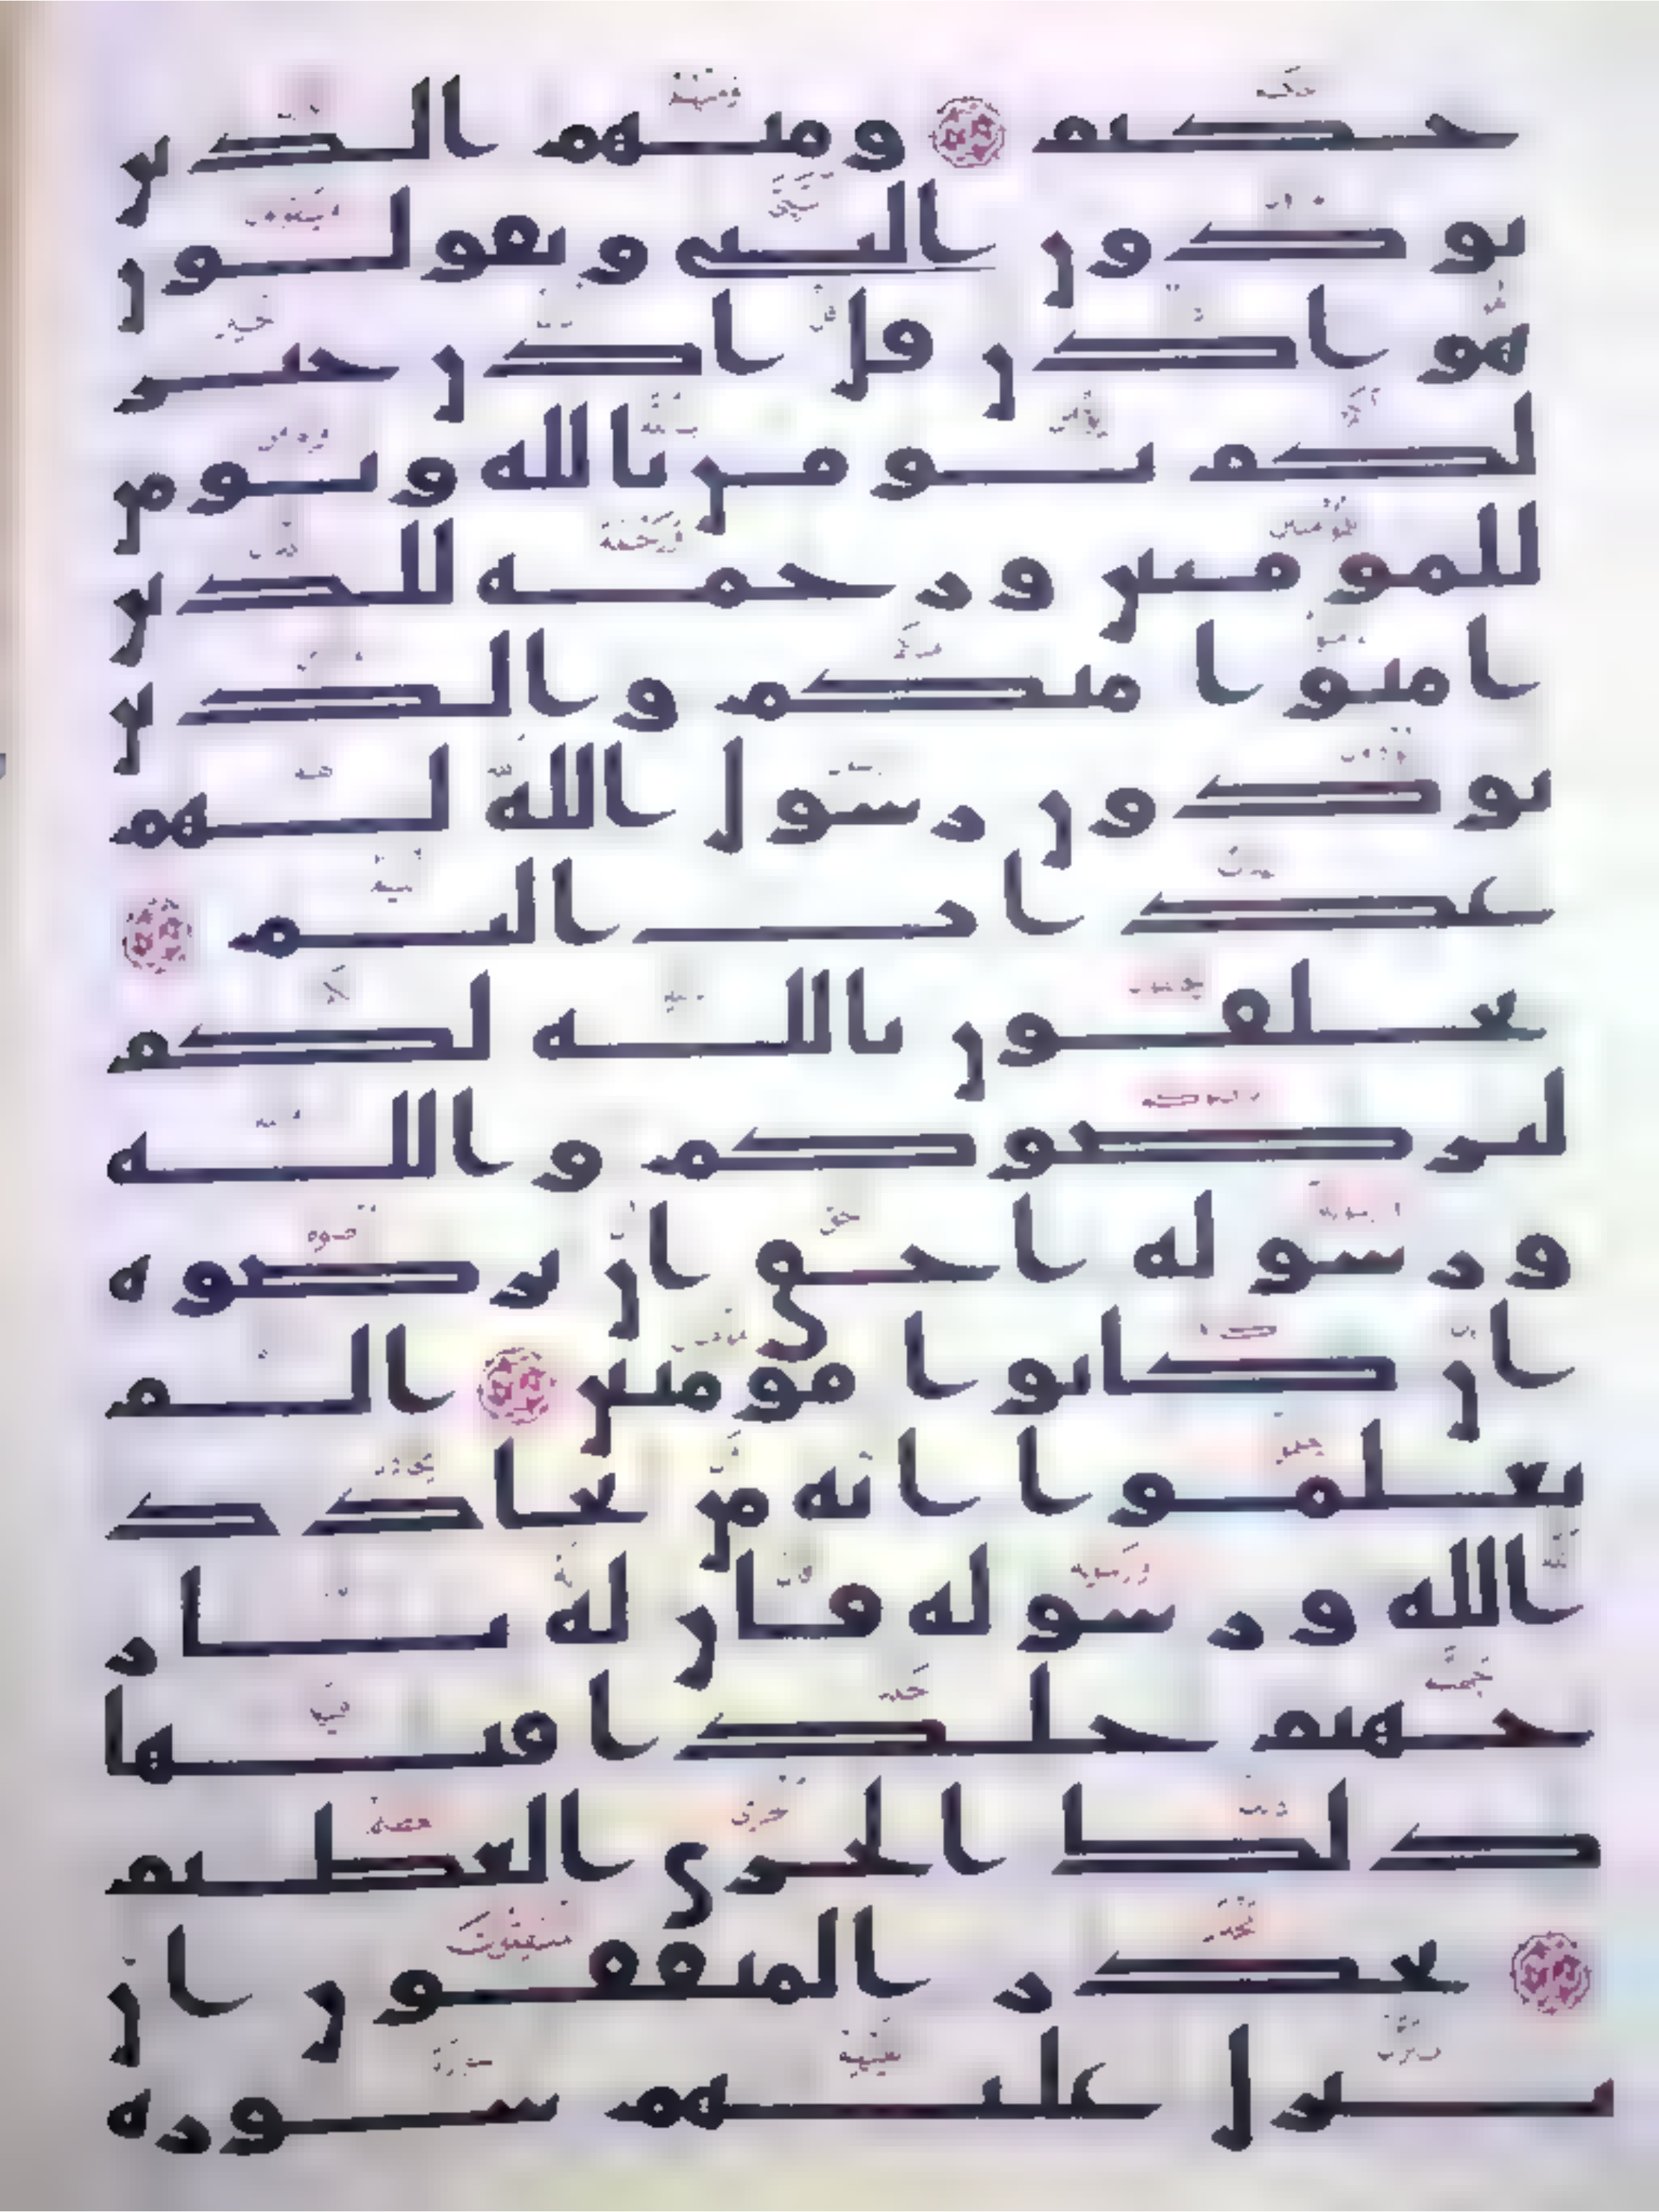 حكيم ومنهم الذين
يوذون النبى ويقولون
هو اذن قل اذن خير
لكم يومن بالله ويومن
للمومنين ورحمه للذين
امنوا منكم والذين
يوذون رسول الله لهم
عذاب اليم
يحلفون بالله لكم
ليرضوكم والله
ورسوله احق ان يرضوه
ان كانوا مومنين الم
يعلموا انه من يحادد
الله ورسوله فان له نار
جهنم خلدا فيها
ذلك الخزي العظيم
يحذر المنفقون ان
تنزل عليهم سوره